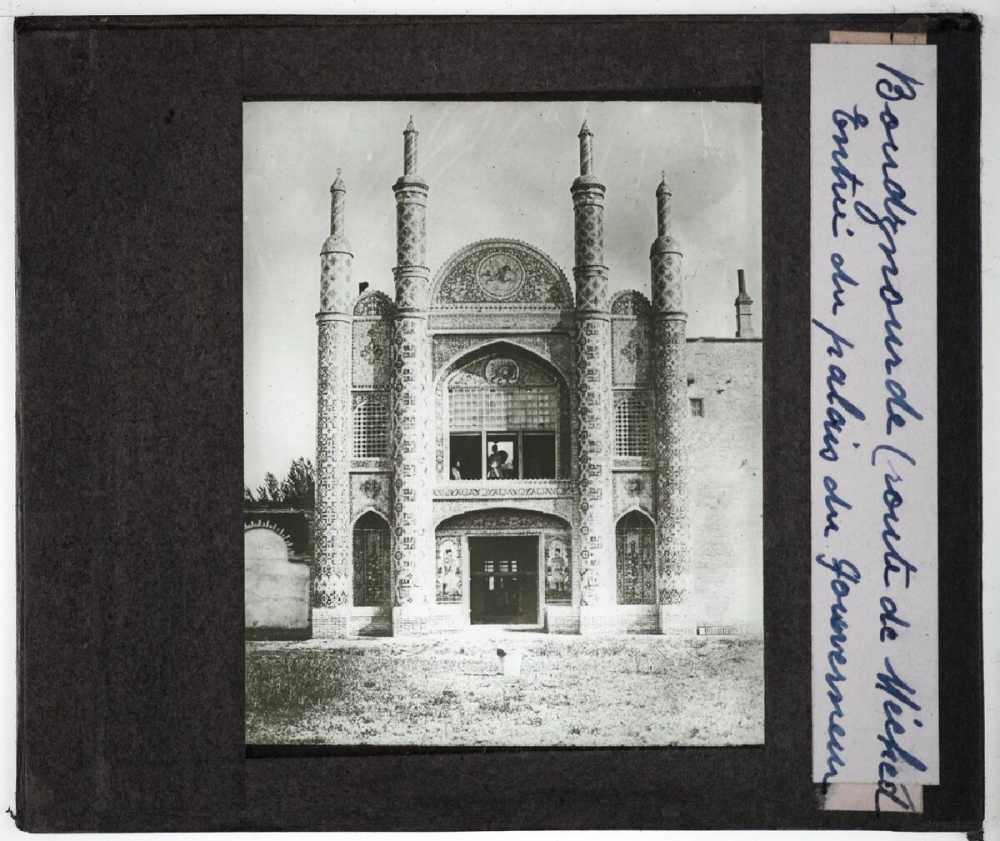 Boudjnourde (route de Méched
Entrée du palais du Gouverneur